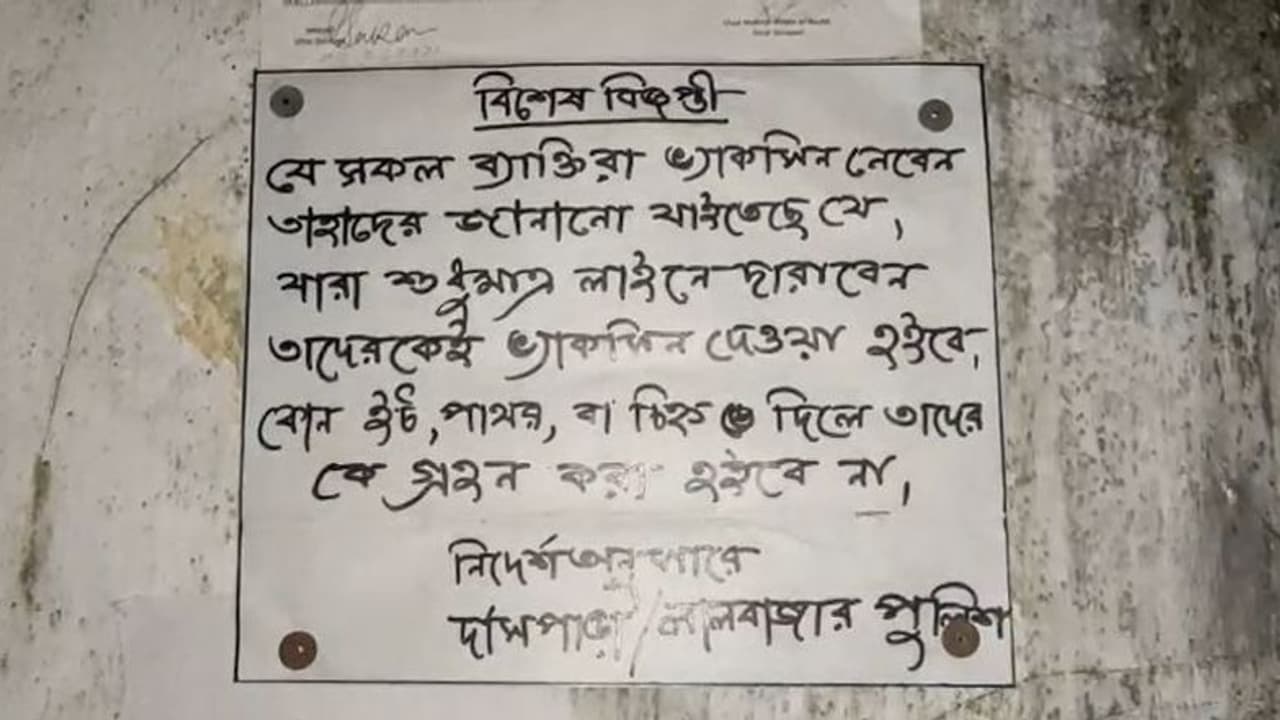 বিশেষ বিজ্ঞপ্তী
যে সকল ব্যাক্তিরা ভ্যাকসিন নেবেন
তাহাদের জানানো যাইতেছে যে,
যারা শুধুমাত্র লাইনে দারাবেন
তাদেরকেই ভ্যাকসিন দেওয়া হইবে,
কোন ইট, পাথর, বা চিহ্ন দিলে তাদের
কে গ্রহন করা হইবে না,
নির্দেশ অনুসারে
দাসপাড়া / লালবাজার পুলিশ